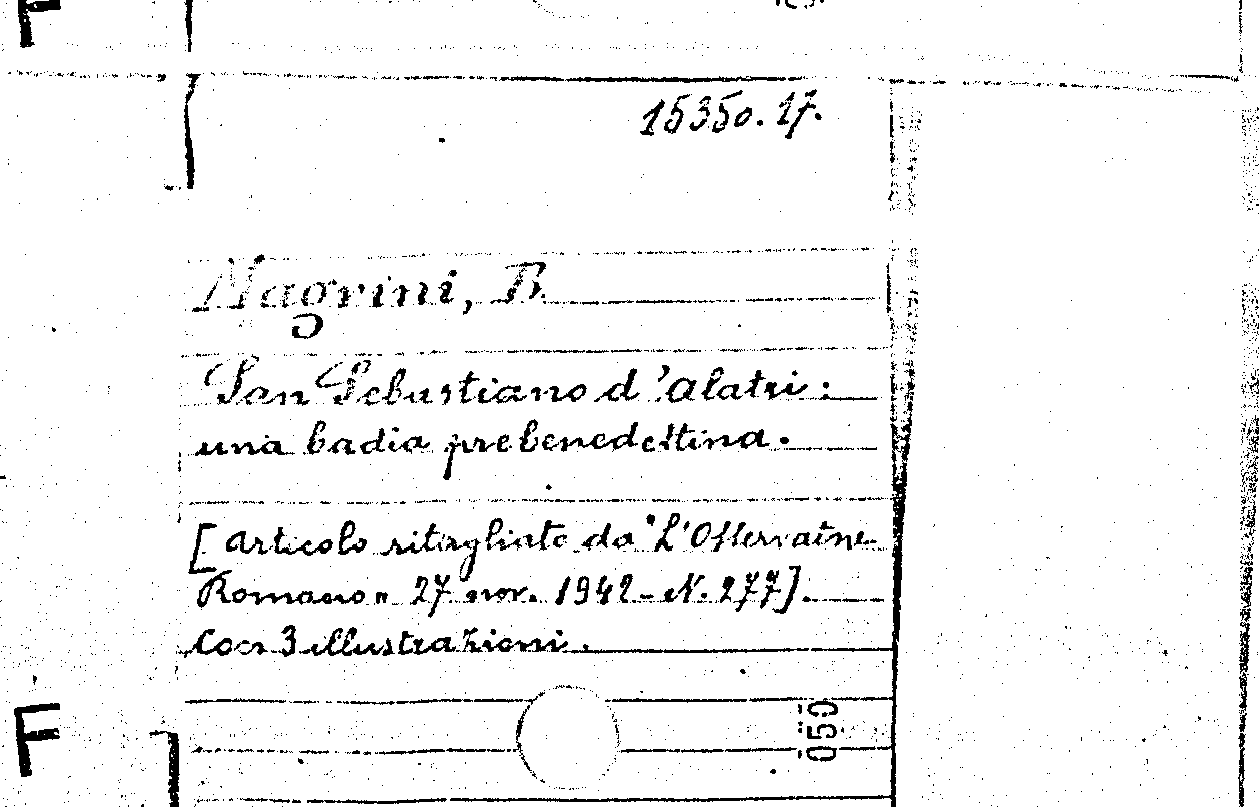 F
15350. 17.
Magrini, B.
San Sebastiano d'Alatri:
una badia prebenedettina.
[Articolo ritagliato da "L'Osservatore
Romano" 27 nov. 1942 - N. 277].
Con 3 illustrazioni.
F
050